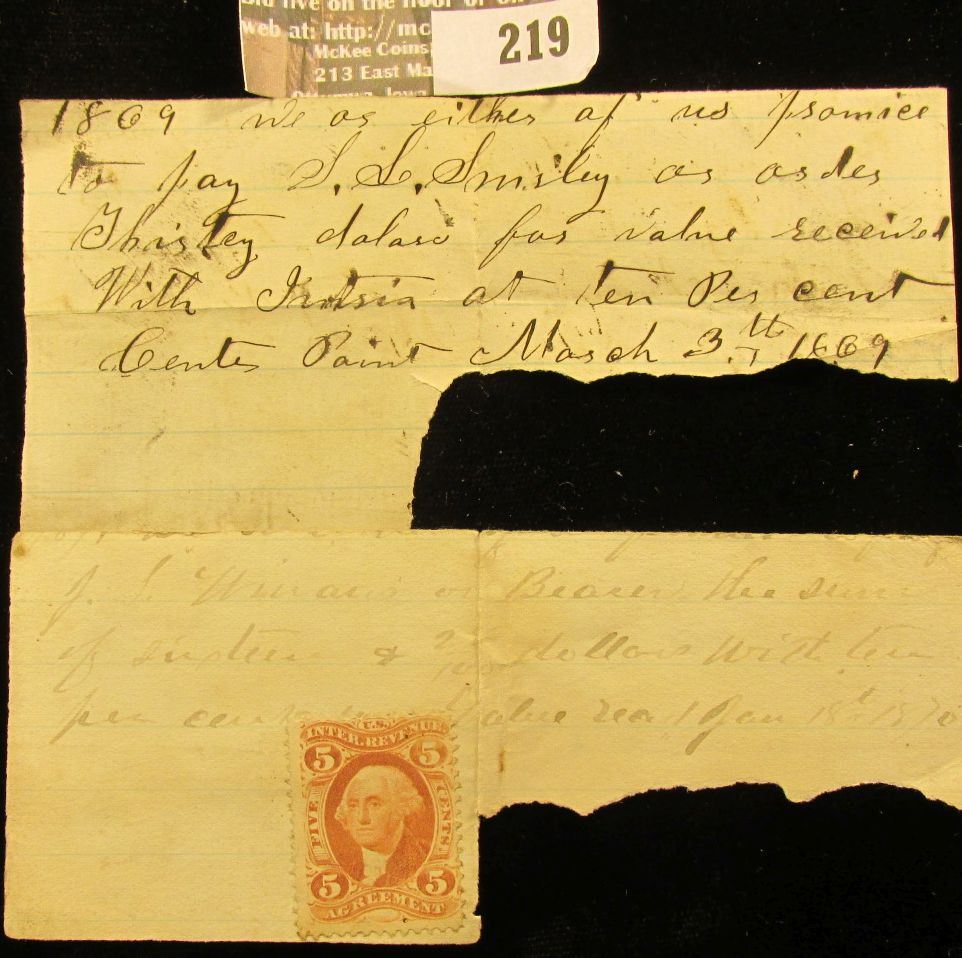 Bid live on the floor or on
web at: http://mc
McKee Coins
213 East Ma
Ottumwa, Iowa
219
1869 we or either of us promice
to pay S. L. Smiley or order
Thirtey dolars for value received
With Intrsin at ten Per cent
Center Point March 3th 1869
J. L. Winans or Bearer the sum
of sixteen & dollars With ten
per cent value rec Jan 18 1870
U.S.
INTER. REVENUE
5 5
FIVE CENTS.
5 5
AGREEMENT